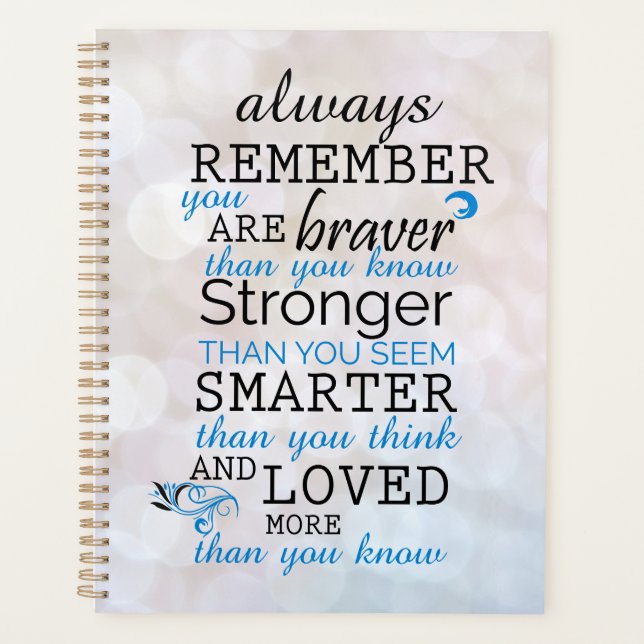 always
REMEMBER
you
ARE braver
than you know
Stronger
THAN YOU SEEM
SMARTER
than you think
AND LOVED
MORE
than you know